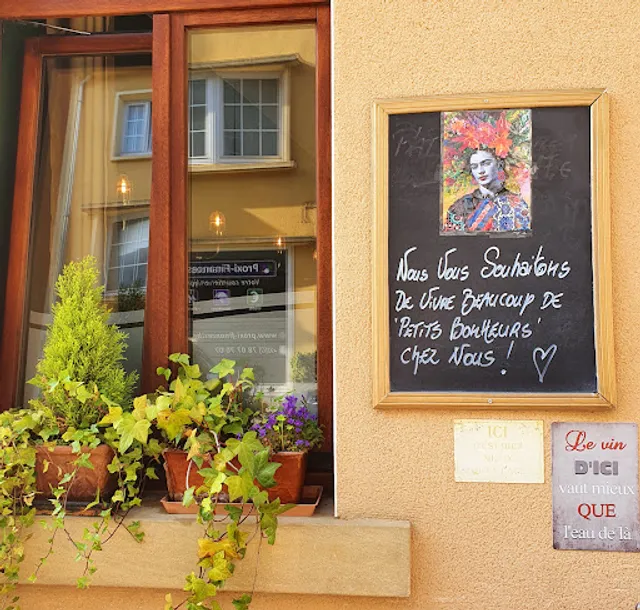 Nous Vous Souhaitons
De Vivre Beaucoup de
'Petits Bonheurs'
chez Nous ! ♡
ICI
Le vin
D'ICI
vaut mieux
QUE
l'eau de là
Proxi-Finances